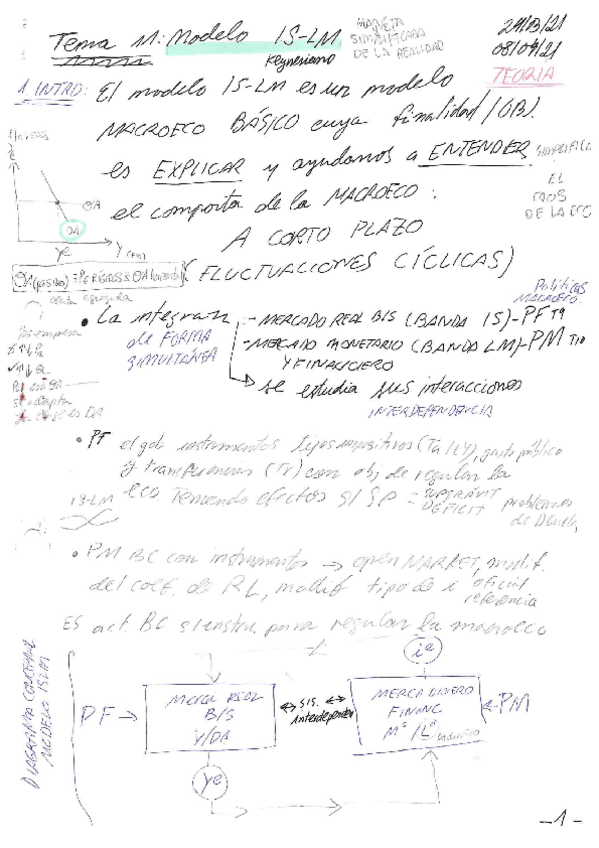 Tema 11: Modelo IS-LM
keynesiano
MANERA
SIMPLIFICADA
DE LA REALIDAD
24/03/21
08/04/21
TEORIA
1 INTRO: El modelo IS-LM es un modelo
MACROECO BÁSICO cuya finalidad/OBJ.
es EXPLICAR y ayudarnos a ENTENDER
el comporta de la MACROECO:
SIMPLIFICA
EL
CAOS
DE LA ECO
A CORTO PLAZO
(FLUCTUACIONES CÍCLICAS)
OA
DA
Ye
• La integran
de FORMA
SIMULTÁNEA
Políticas
MACROECO
- MERCADO REAL B/S (BANDA IS) - PF T9
- MERCADO MONETARIO (BANDA LM) - PM T10
Y FINANCIERO
→ se estudia sus interacciones
INTERDEPENDENCIA
• PF el gob instrumentos tipos impositivos (Ta/tY), gasto público
y transferencias (Tr) con obj de regular la
eco. Teniendo efectos s/ SP = SUPERÁVIT
DÉFICIT
problemas
de Deuda
IS-LM
• PM BC con instrumentos → open MARKET, modif.
del coef. de RL, modif tipo de i oficial
referencia
ES act. BC s/ instru para regular la macroeco
DIAGRAMA
MODELO ISLM
PF →
Merca REAL
B/S
Y/DA
↔ SIS. ↔
interdepen
MERCA DINERO
FINANC
← PM
Ye
-1-